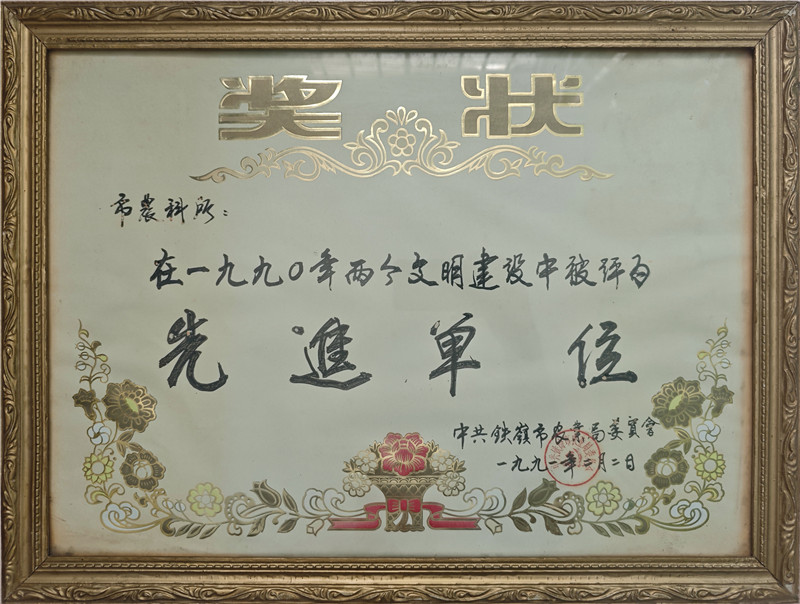 奖状
市農科所：
在一九九〇年两个文明建设中被评为
先進單位
中共铁嶺市农业局委員會
一九九一年二月二日